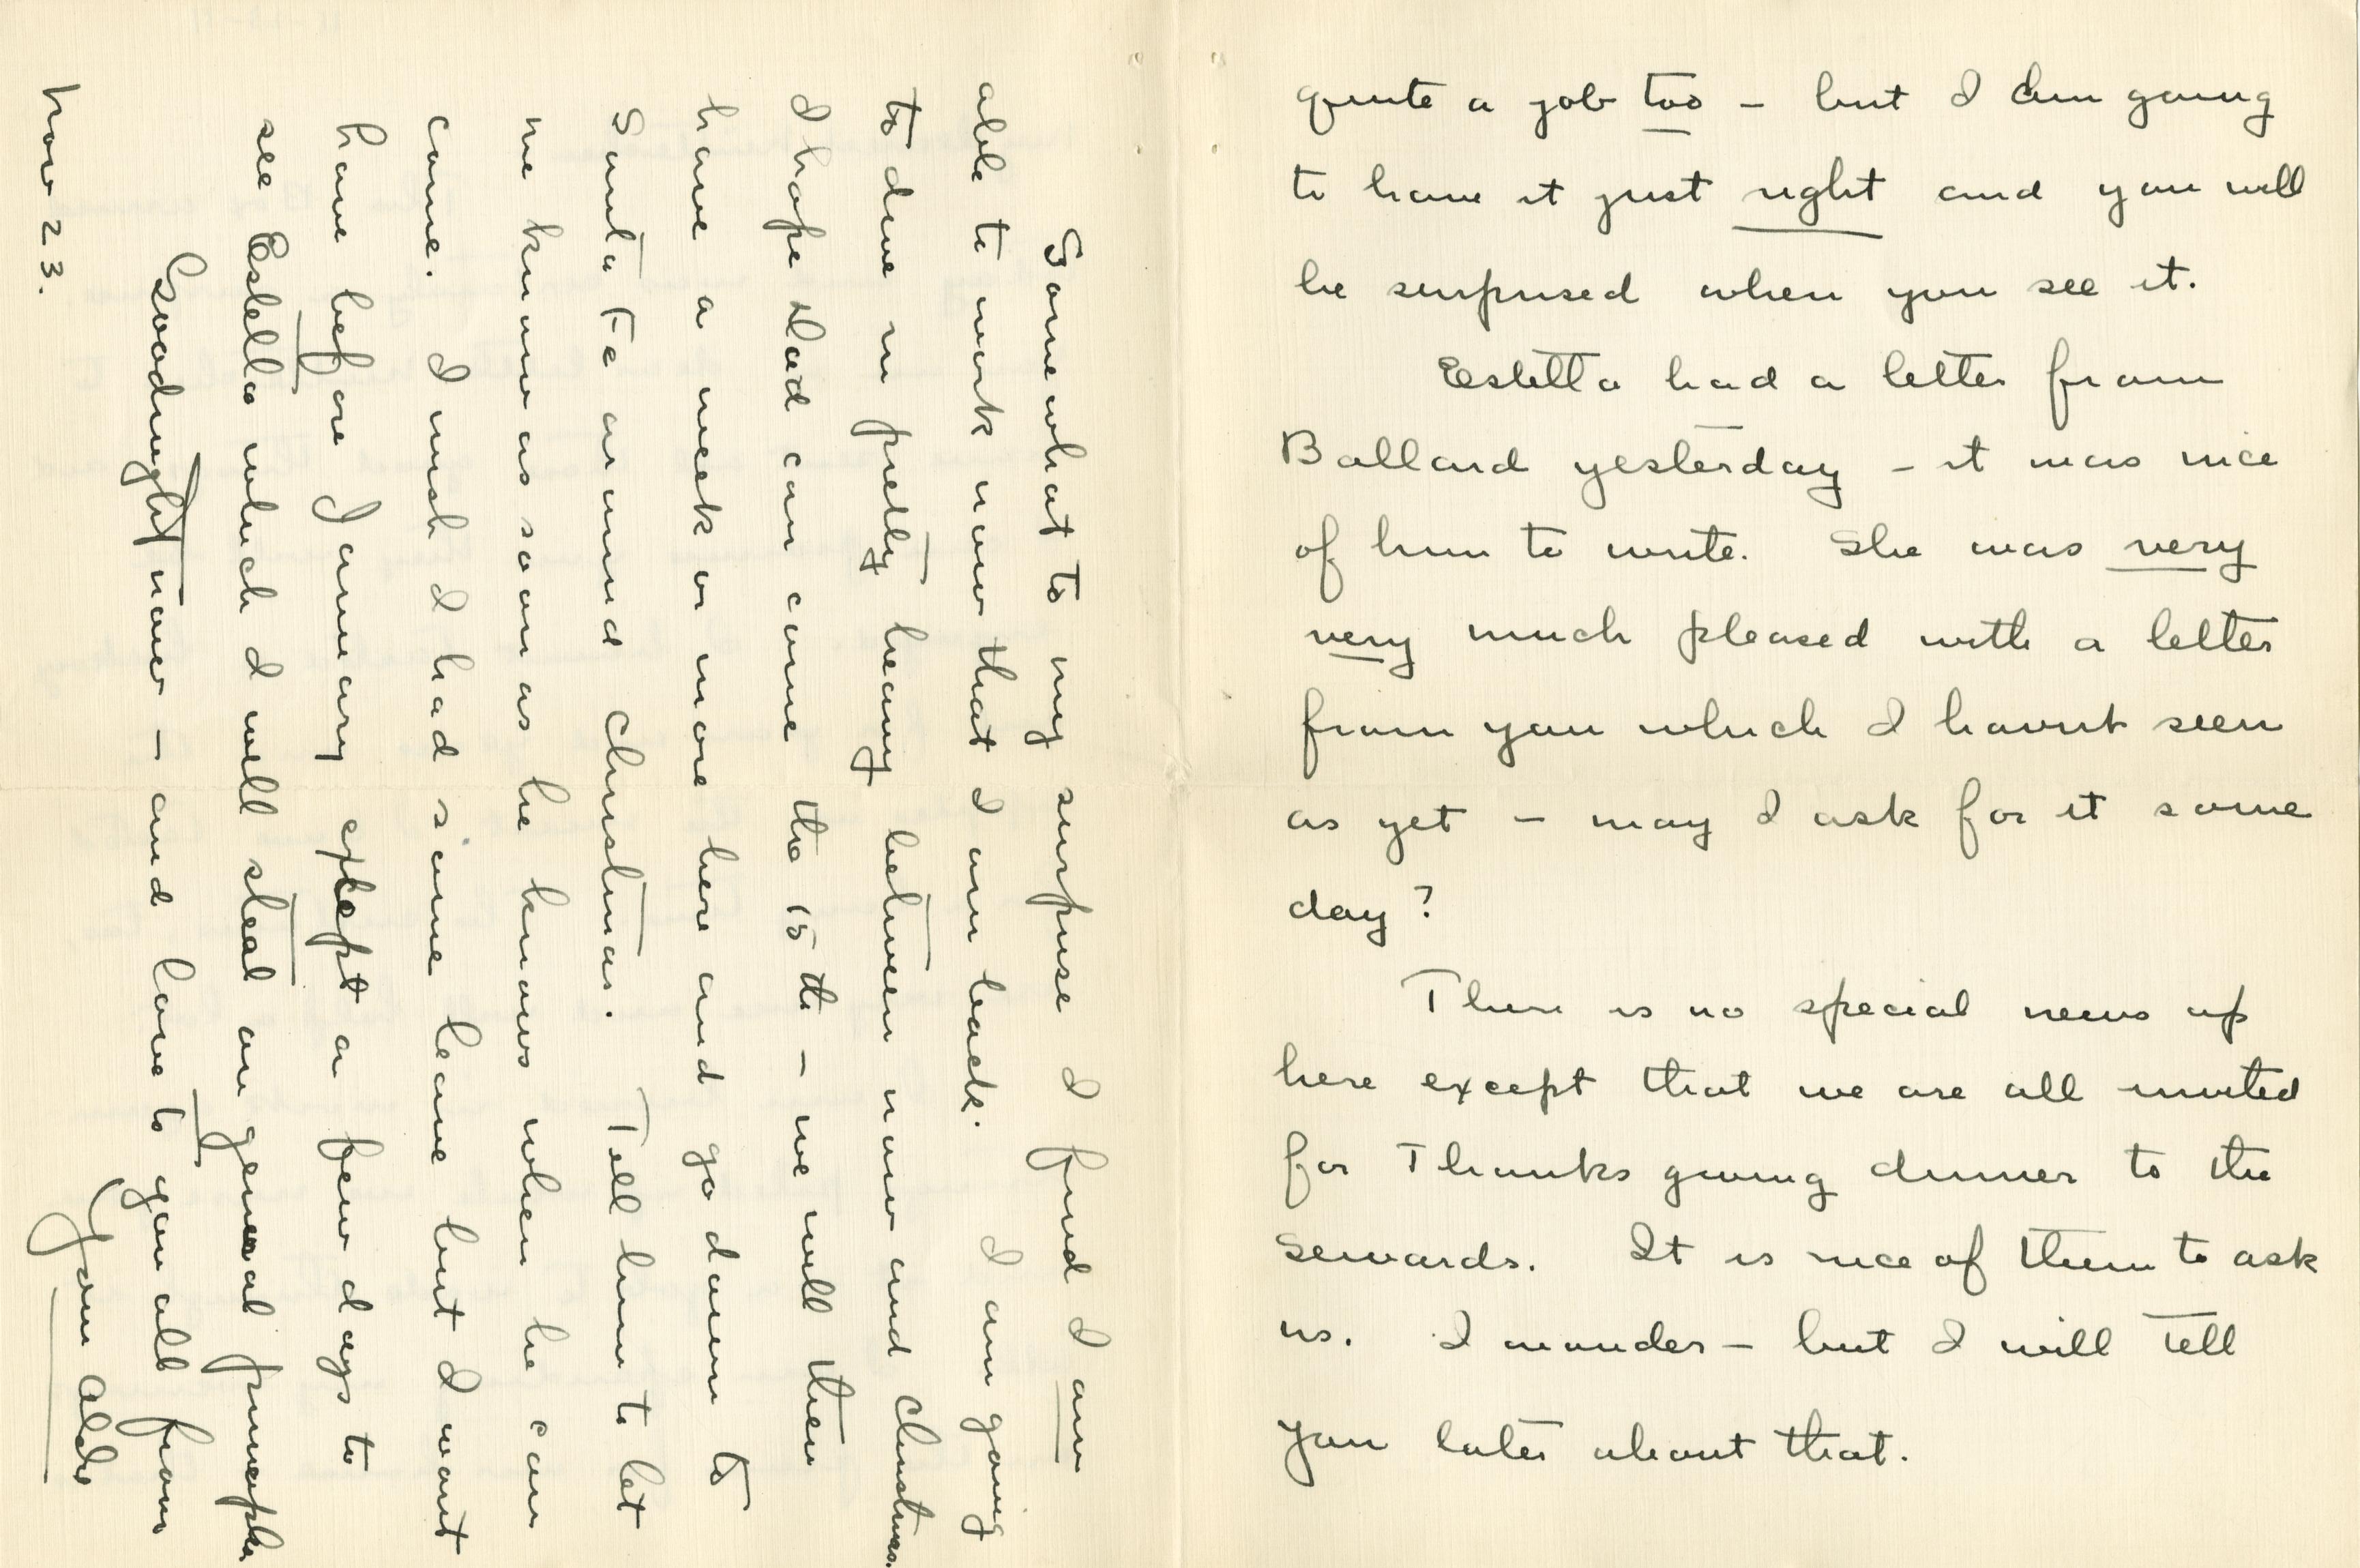 quite a job too – but I am going
to have it just right and you will
be surprised when you see it.
Estella had a letter from
Ballard yesterday – it was nice
of him to write. She was very
very much pleased with a letter
from you which I havnt seen
as yet – may I ask for it some
day?
There is no special news up
here except that we are all invited
for Thanksgiving dinner to the
Sewards. It is nice of them to ask
us. I wonder – but I will tell
you later about that.
Somewhat to my surprise I find I am
able to work now that I am back. I am going
to dive in pretty heavy between now and Christmas.
I hope Dad can come the 15th – we will then
have a week or more here and go down to
Santa Fe around Christmas. Tell him to let
me know as soon as he knows when he can
come. I wish I had some leave but I wont
have before January except a few days to
see Estella which I will steal on general principle
Goodnight now – and love to you all from
Your Aldo
Nov 23.